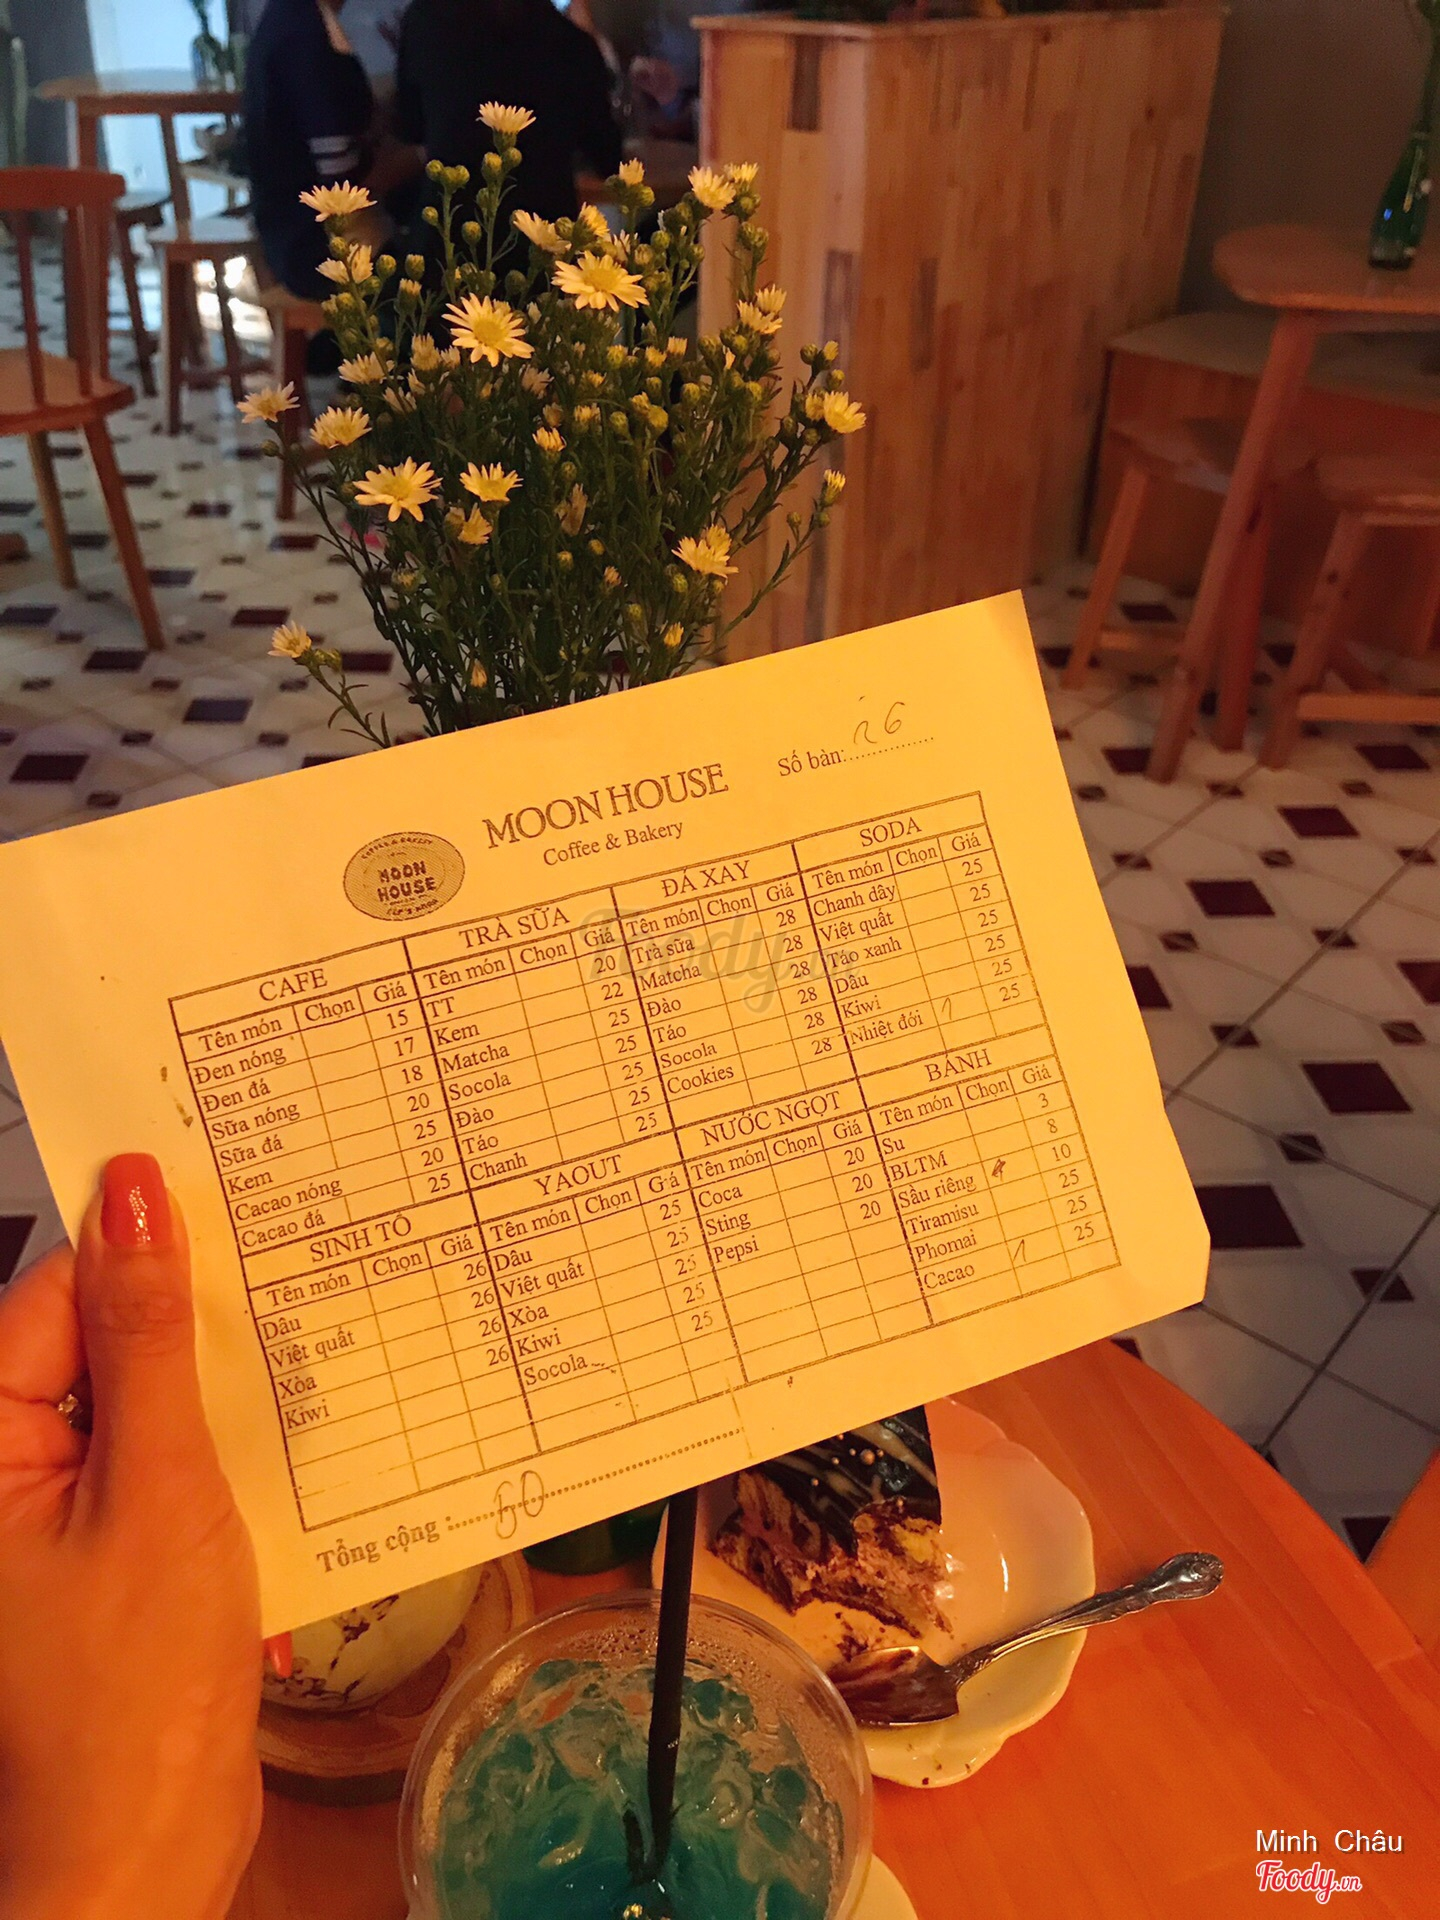 Số bàn: 26
MOON HOUSE
Coffee & Bakery
COFFEE & BAKERY
MOON
HOUSE
CAFE
Tên món Chọn Giá
Đen nóng 15
Đen đá 17
Sữa nóng 18
Sữa đá 20
Kem 25
Cacao nóng 20
Cacao đá 25
TRÀ SỮA
Tên món Chọn Giá
TT 20
Kem 22
Matcha 25
Socola 25
Đào 25
Táo 25
Chanh 25
ĐÁ XAY
Tên món Chọn Giá
Trà sữa 28
Matcha 28
Đào 28
Táo 28
Socola 28
Cookies 28
SODA
Tên món Chọn Giá
Chanh dây 25
Việt quất 25
Táo xanh 25
Dâu 25
Kiwi 25
Nhiệt đới 1 25
SINH TỐ
Tên món Chọn Giá
Dâu 26
Việt quất 26
Xòa 26
Kiwi 26
YAOUT
Tên món Chọn Giá
Dâu 25
Việt quất 25
Xòa 25
Kiwi 25
Socola 25
NƯỚC NGỌT
Tên món Chọn Giá
Coca 20
Sting 20
Pepsi 20
BÁNH
Tên món Chọn Giá
Su 3
BLTM 8
Sầu riêng 10
Tiramisu 25
Phomai 25
Cacao 1 25
Tổng cộng : 50
Foody.vn
Minh Châu
Foody.vn